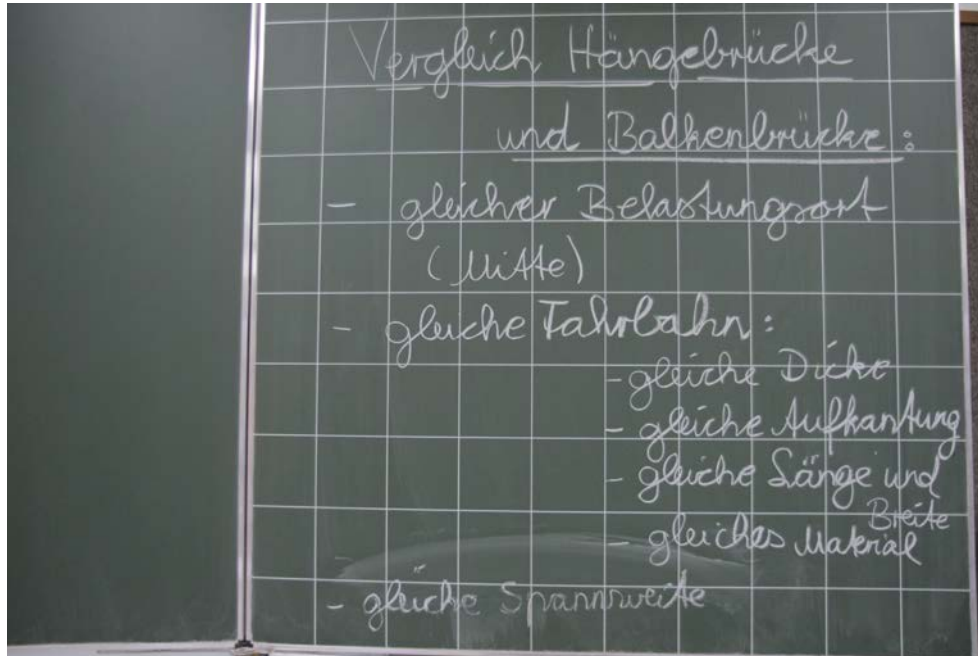 Vergleich Hängebrücke
und Balkenbrücke:
- gleicher Belastungsort
(Mitte)
- gleiche Fahrbahn:
- gleiche Dicke
- gleiche Aufkantung
- gleiche Länge und
Breite
- gleiches Material
- gleiche Spannweite